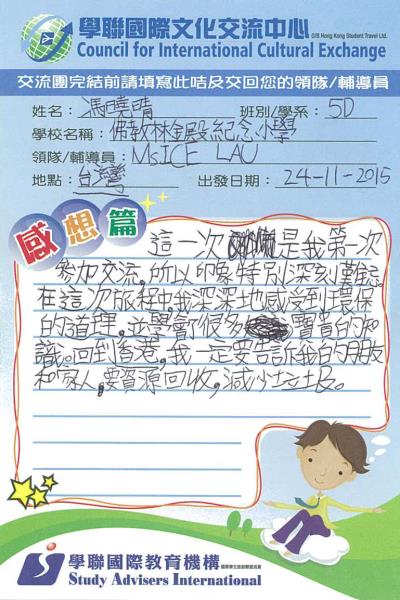 學聯國際文化交流中心 O/B Hong Kong Student Travel Ltd.
Council for International Cultural Exchange
交流團完結前請填寫此咭及交回您的領隊/輔導員
姓名：馮曉晴 班別/學系：5D
學校名稱：佛教林金殿紀念小學
領隊/輔導員：Ms.ICE LAU
地點：台灣 出發日期：24-11-2015
感想篇
這一次是我第一次
參加交流，所以印象特別深刻難忘。
在這次旅程中，我深深地感受到環保
的道理，並學會很多寶貴的知
識。回到香港，我一定要告訴我的朋友
和家人，要資源回收，減少垃圾。
學聯國際教育機構
Study Advisers International